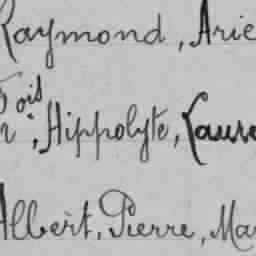 Raymond, Arie
ois
, Hippolyte, Laure
Albert, Pierre, Mar